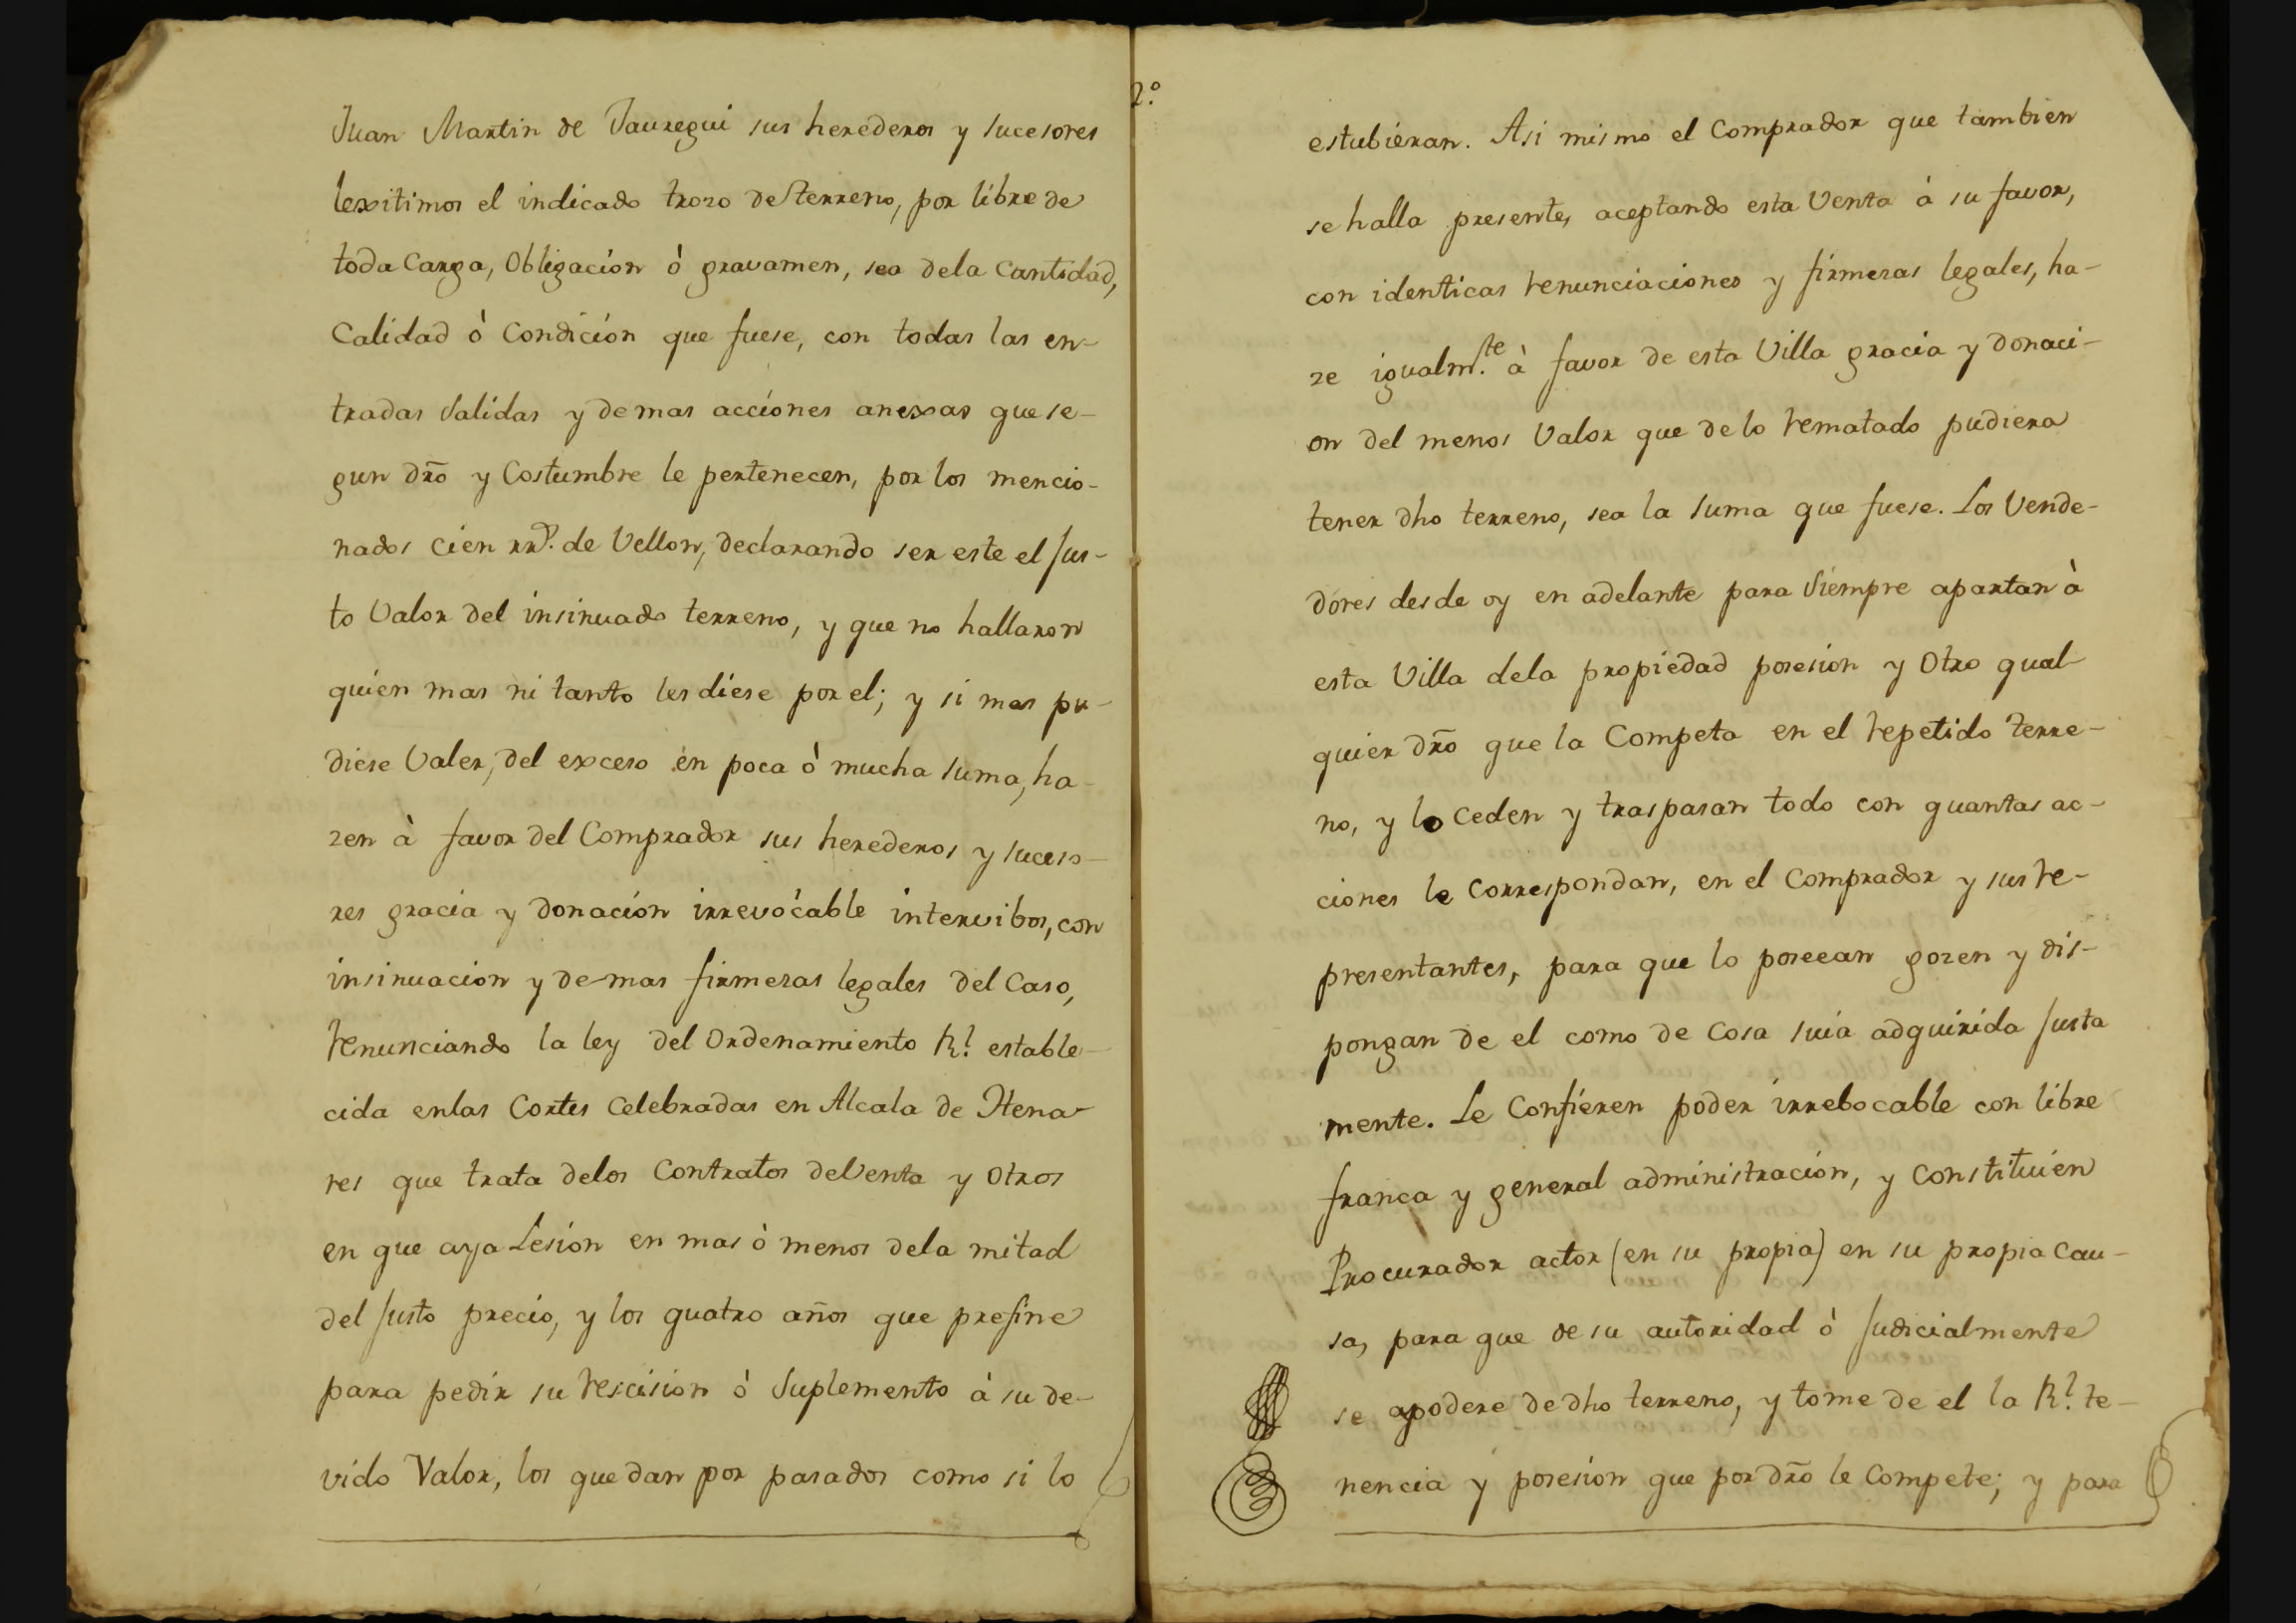 Juan Martin de Jauregui sus herederos y sucesores
lexitimos el indicado trozo de Sterreno, por libre de
toda Carga, Obligación ò gravamen, sea dela Cantidad,
Calidad ò Condición que fuese, con todas las en-
tradas Salidas y demas acciónes anexas que se-
gun dr̃o y Costumbre le pertenecen, por los mencio-
nados cien rr.ˢ de Vellon, declarando ser este el Jus-
to Valor del insinuado terreno, y que no hallaron
quien mas ni tanto les diese por el; y si mas pu-
diese Valer, del exceso en poca ò mucha suma, ha-
zen à favor del Comprador sus herederos y suceso-
res gracia y donación irrevócable intervibos, con
insinuacion y demas firmezas legales del Caso,
renunciando la ley del Ordenamiento R.l estable-
cida enlas Cortes Celebradas en Alcala de Hena-
res que trata delos Contratos deVenta y Otros
en que aya Lesión en mas ò menos dela mitad
del Justo precio, y los quatro años que prefine
para pedir su rescision ò Suplemento à su de-
vido Valor, los que dan por pasados como si lo
2.º
estubiéran. Asi mismo el Comprador que tambien
se halla presente, aceptando esta Venta à su favor,
con identicas renunciaciones y firmezas legales, ha-
ze igualm.te à favor de esta Villa gracia y donaci-
on del menos Valor que de lo rematado pudiera
tener dho terreno, sea la suma que fuese. Los Vende-
dores desde oy en adelante para Siempre apartan à
esta Villa dela propiedad posesión y Otro qual-
quier dr̃o que la Competa en el repetido terre-
no, y lo Ceden y traspasan todo con quantas ac-
ciones le Correspondan, en el Comprador y sus re-
presentantes, para que lo poseean gozen y dis-
pongan de el como de Cosa suia adquirida Justa
mente. Le Confieren poder irrebocable con libre
franca y general administración, y Constituien
Procurador actor (en su propia) en su propia Cau-
sa, para que de su autoridad ò Judicialmente
se apodere de dho terreno, y tome de el la R.l te-
nencia y posesión que por dr̃o le Compete; y para